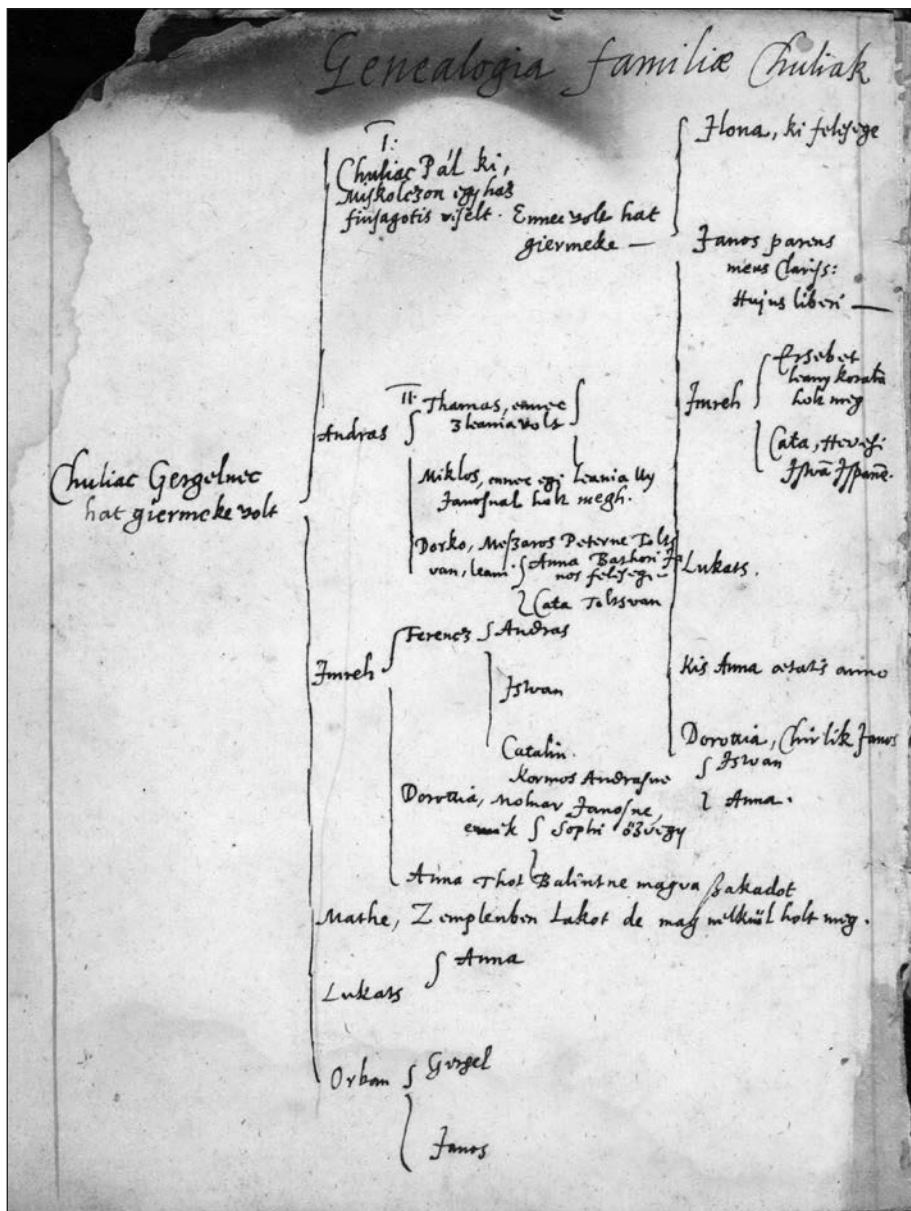 Genealogia familiæ Chuliak
I:
Chuliac Pál ki,
Miskolczon egyhaz
fiusagotis viselt. Ennec volt hat
giermeke —
Ilona, ki felesege
Janos parens
meus Clariss:
Hujus liberi —
Imreh
Ersebet
leany koraba
holt meg
Cata, Hevesi
Istvā Ispanē.
Lukats.
Kis Anna ætatis anno
Dorottia, Chirlik Janos
Istvan
Anna.
Chuliac Gergelnec
hat giermeke volt
Andras
II
Thamas, ennec
3 leania volt
Miklos, ennec egi Leania Uy
Janosual holt megh.
Dorko, Meßaros Peterne Tolts
van, leani Anna Bathori Ja
nos felesegi –
Cata Toltsvan
Imreh
Ferencz Andras
Istvan
Catalin.
Kormos Andrasne
Dorottia, Molnar Janosne,
ennik Sophi özvegy
Anna Thot Balintne magva ßakadot
Mathe, Zemplenben Lakot de mag nelkül holt meg.
Lukats
Anna
Orban Gergel
Janos